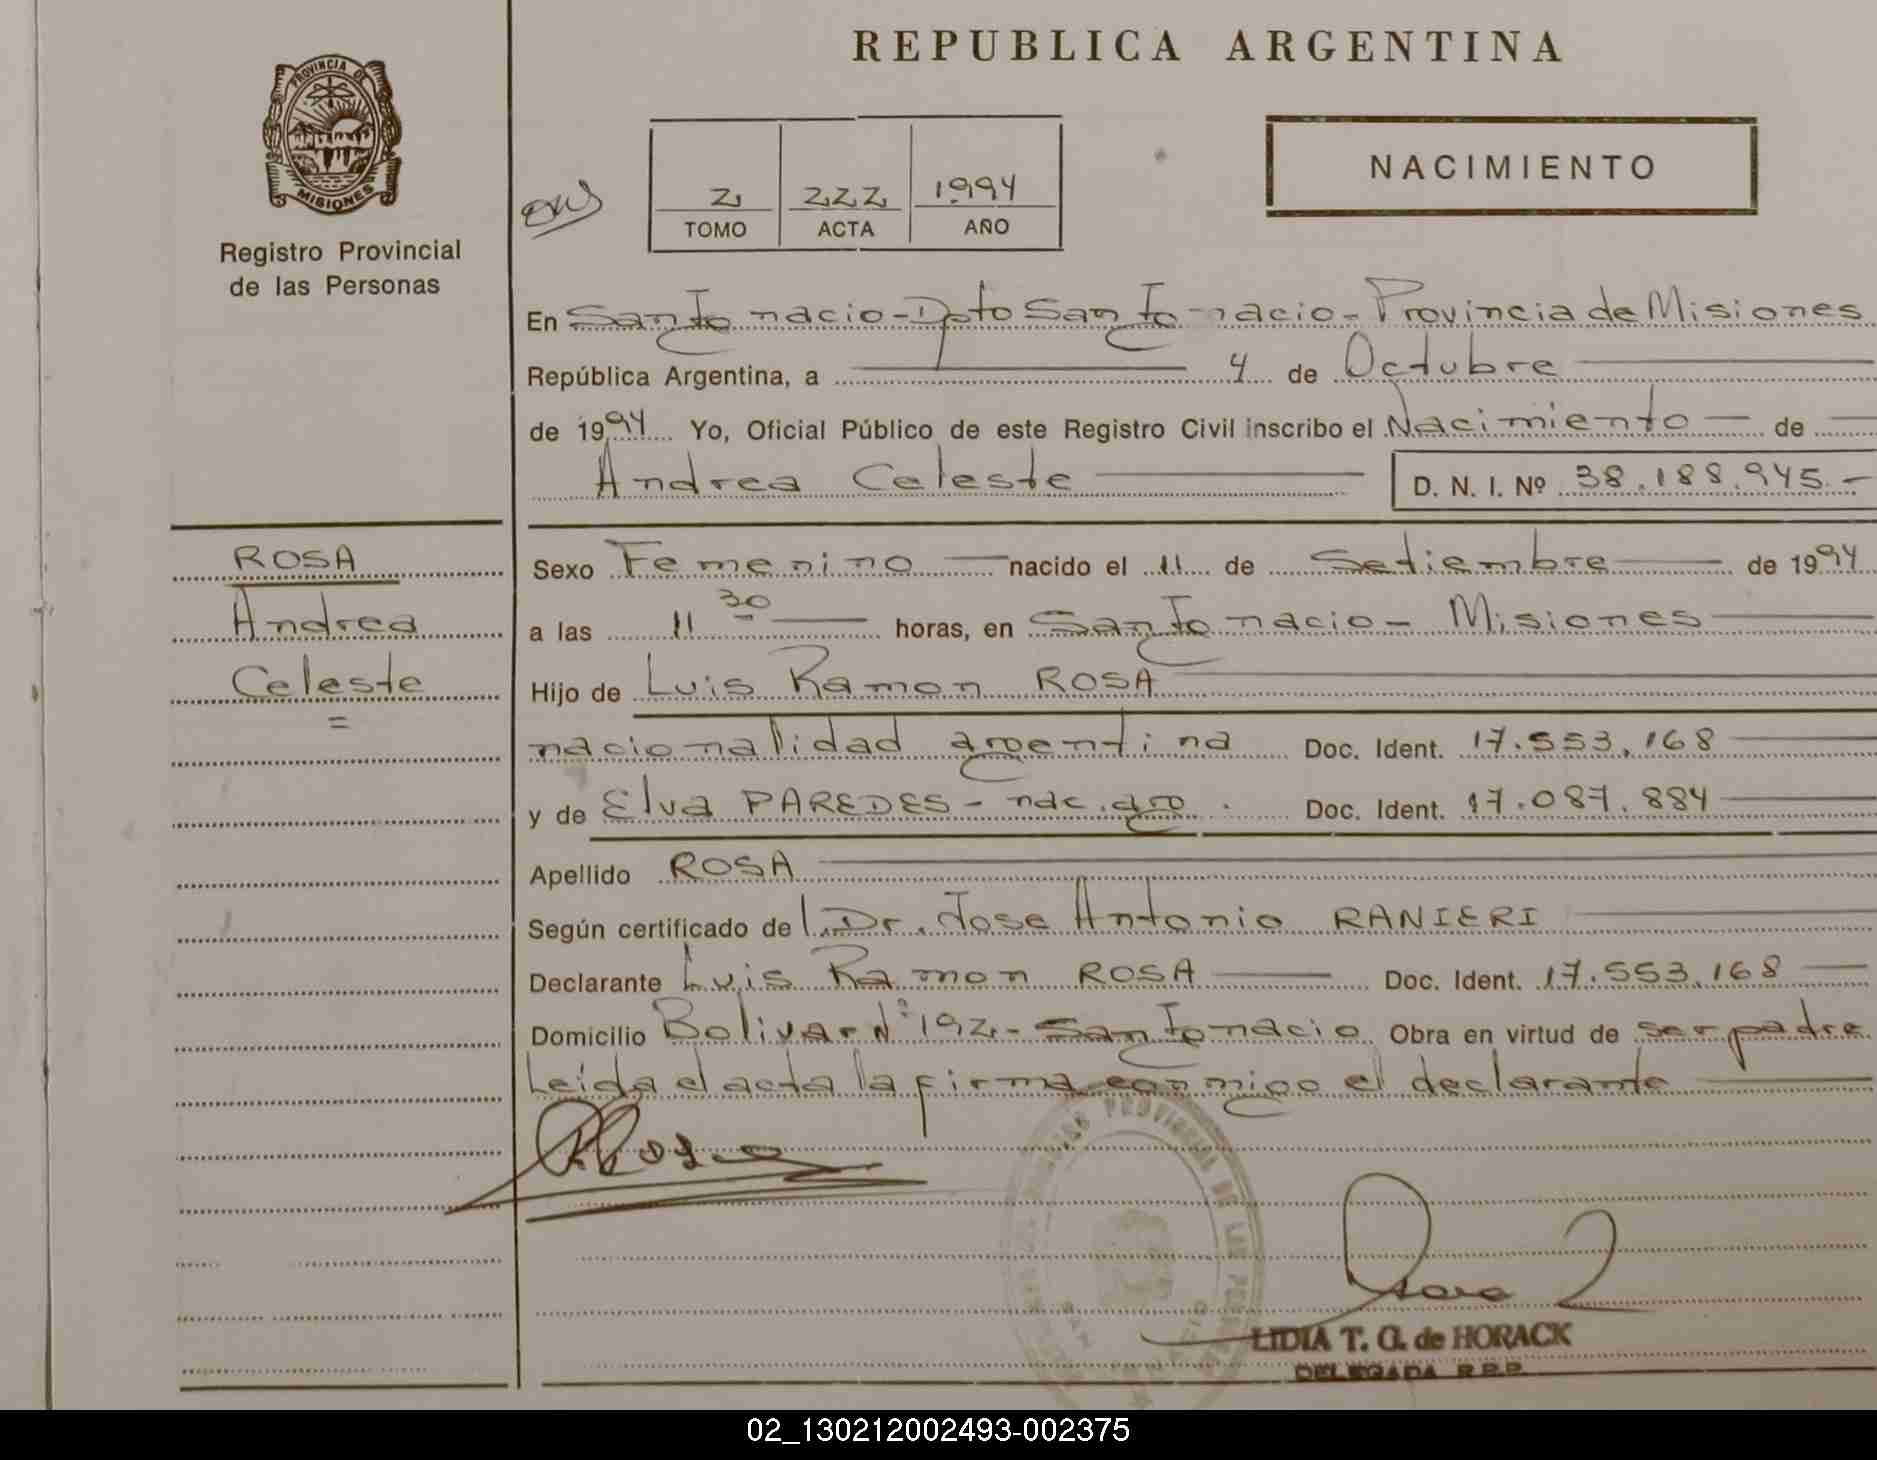 REPUBLICA ARGENTINA
PROVINCIA DE
MISIONES
Registro Provincial
de las Personas
2 222 1994
TOMO ACTA AÑO
NACIMIENTO
En San Ignacio - Dpto San Ignacio - Provincia de Misiones
República Argentina, a 4 de Octubre
de 1994 Yo, Oficial Público de este Registro Civil inscribo el Nacimiento de
Andrea Celeste D. N. I. Nº 38.188.945.-
ROSA
Andrea
Celeste
Sexo Femenino nacido el 11 de Setiembre de 1994
a las 11 30 horas, en San Ignacio - Misiones
Hijo de Luis Ramon ROSA
nacionalidad argentina Doc. Ident. 17.553.168
y de Elva PAREDES - nac. arg. Doc. Ident. 17.087.884
Apellido ROSA
Según certificado de Dr. Jose Antonio RANIERI
Declarante Luis Ramon ROSA Doc. Ident. 17.553.168
Domicilio Bolivar Nº 192 - San Ignacio Obra en virtud de ser padre
Leída el acta la firma conmigo el declarante
LIDIA T. G. de HORACK
DELEGADA R.P.P.
02_130212002493-002375